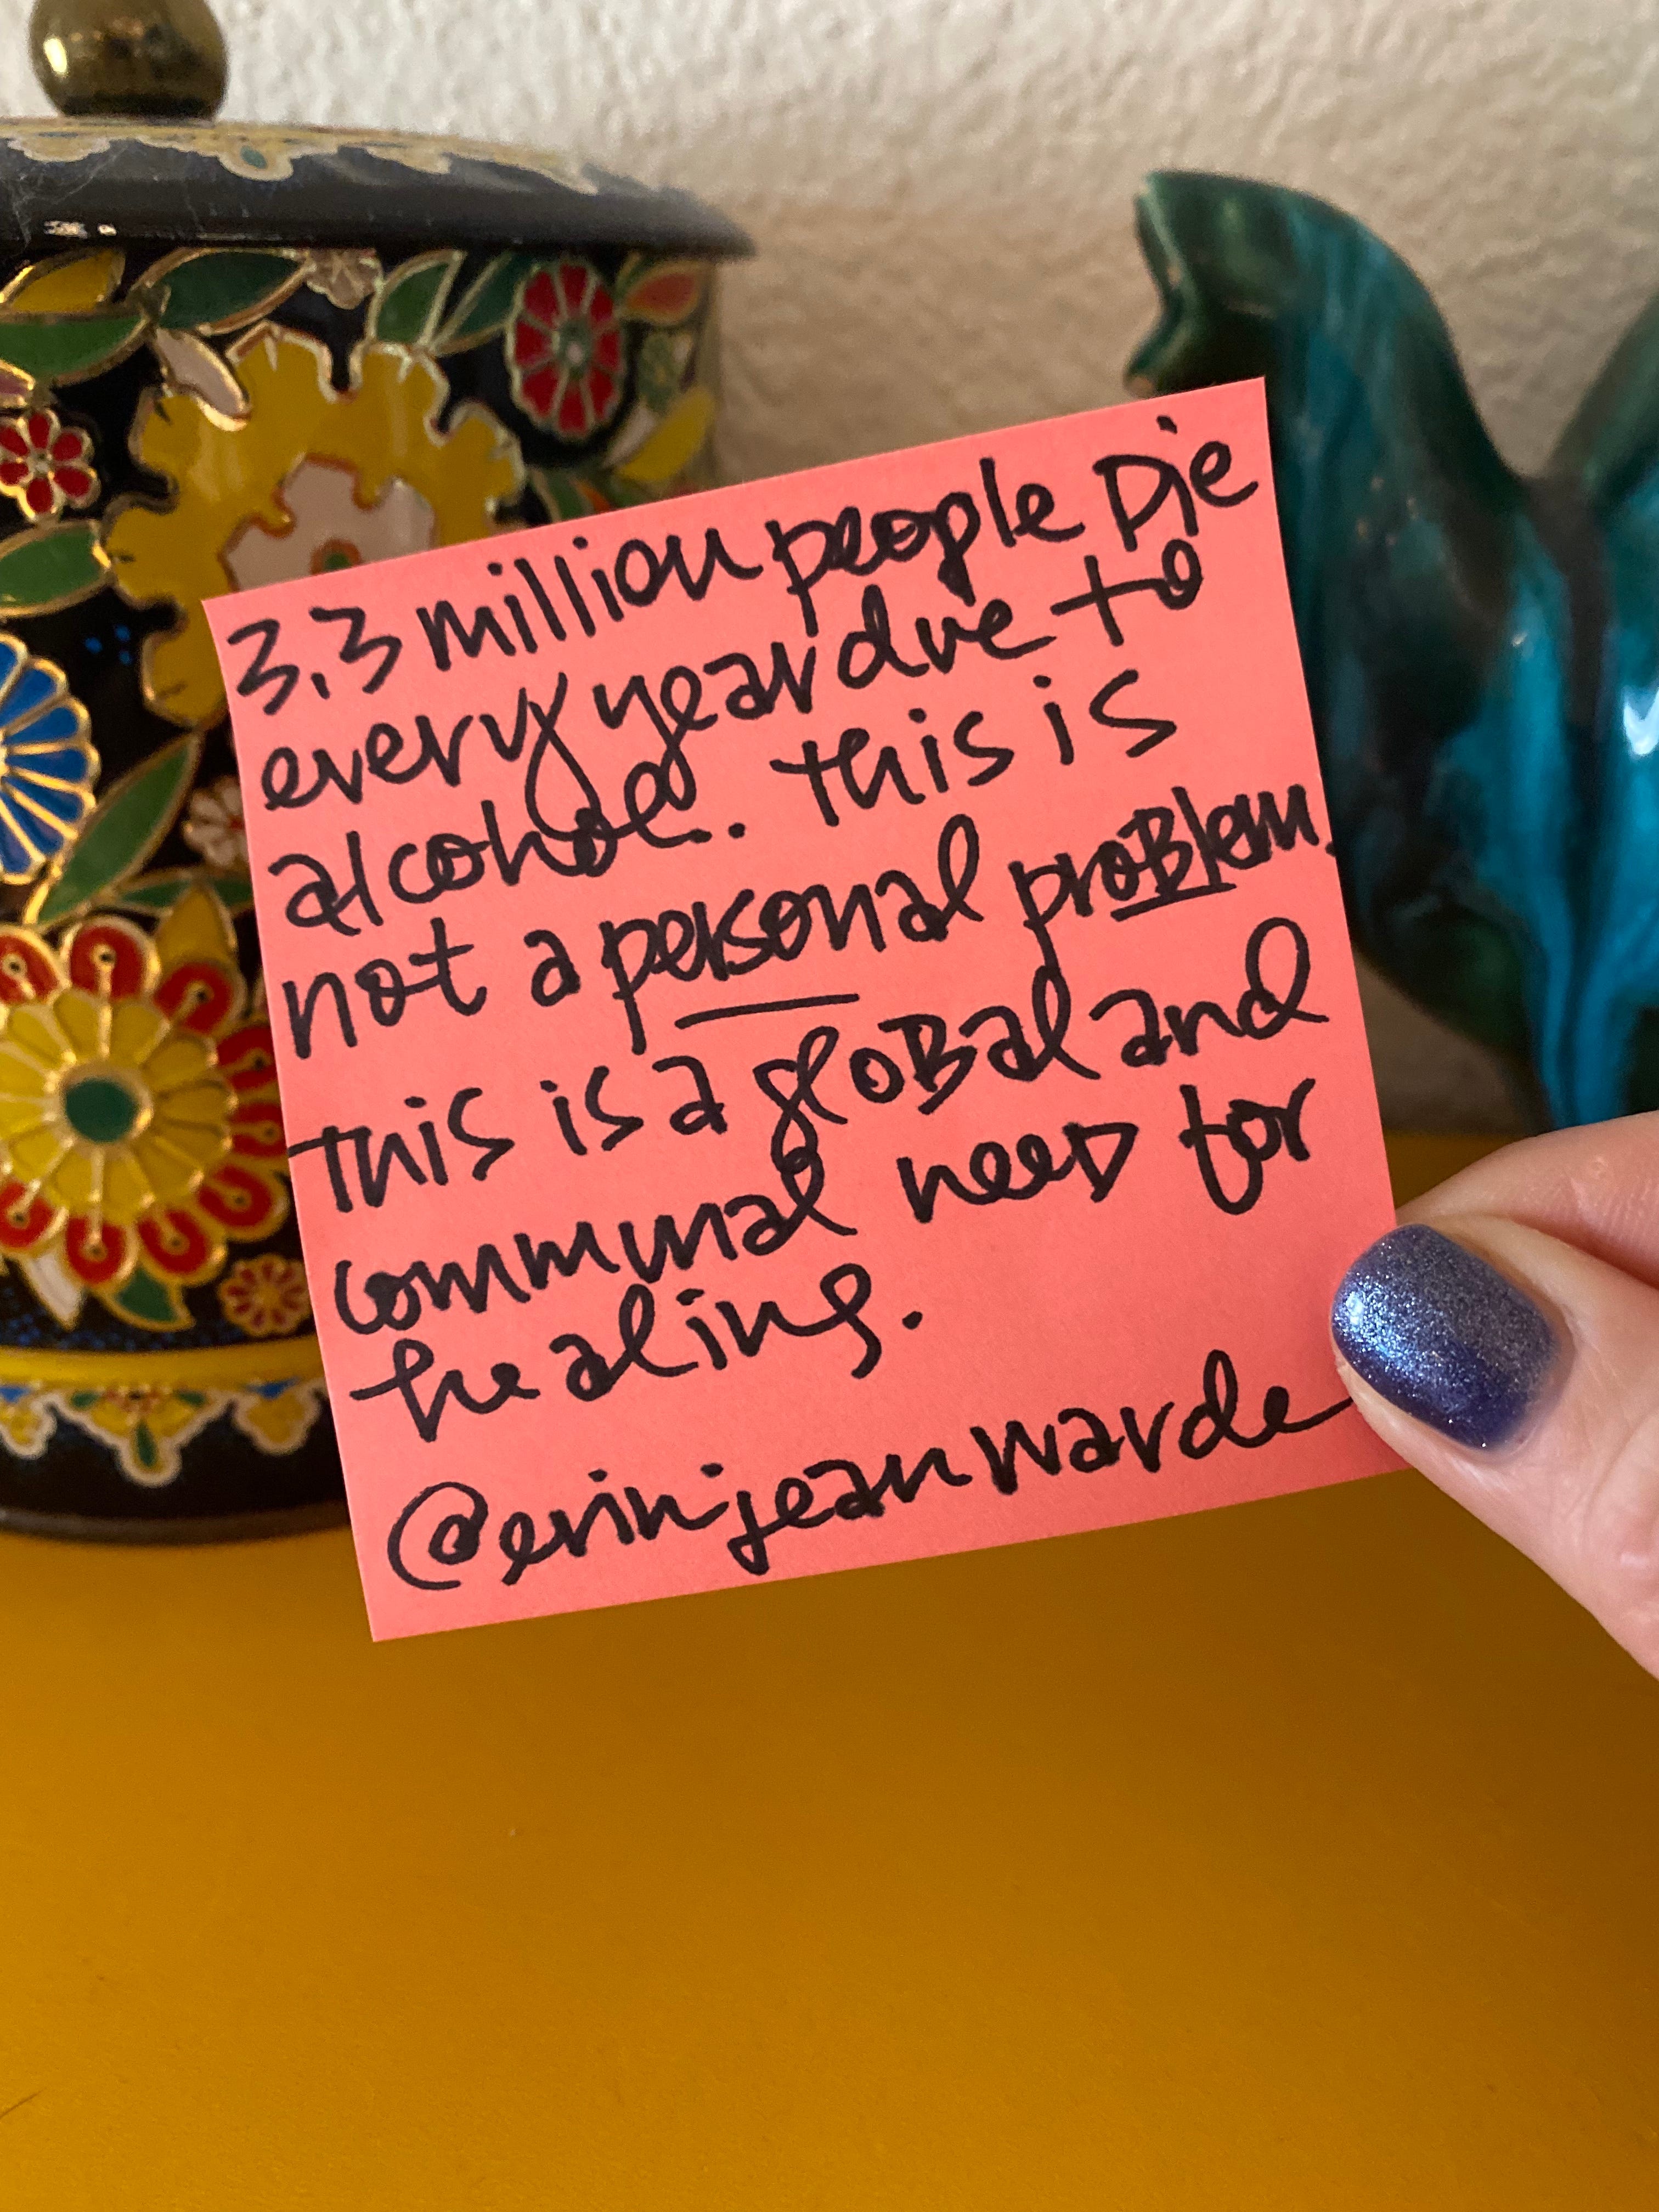 3.3 million people Die
every year due to
alcohol. This is
not a personal proBlem.
This is a gloBal and
communal need for
healing.
@erinjeanwarde